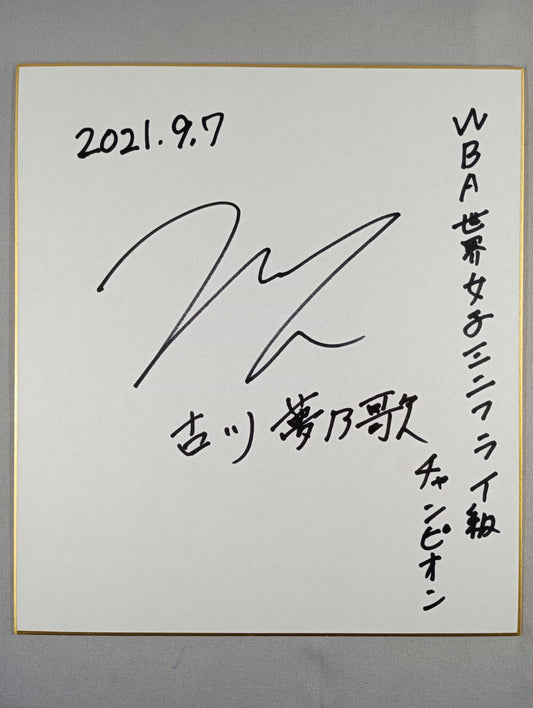 2021.9.7
WBA世界女子ミニフライ級
チャンピオン
古川 夢乃歌